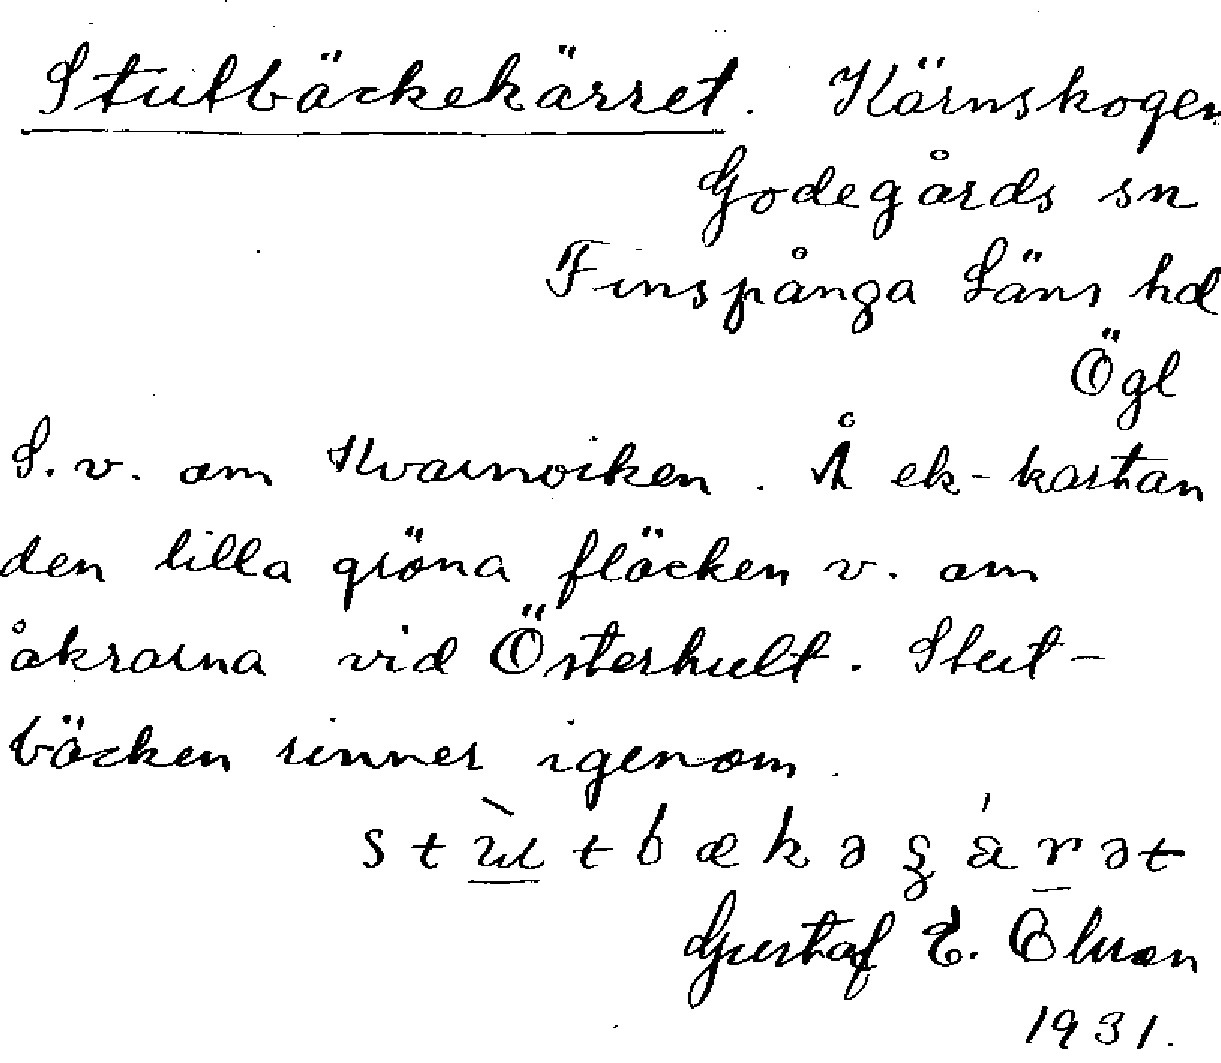 Stutbäckekärret. Kärnskogen
Godegårds sn
Finspånga Läns hd
Ögl
S. v. om Kvarnviken. Å ek-kartan
den lilla gröna fläcken v. om
åkrarna vid Österhult. Stut-
bäcken rinner igenom.
Gustaf E.
1931.